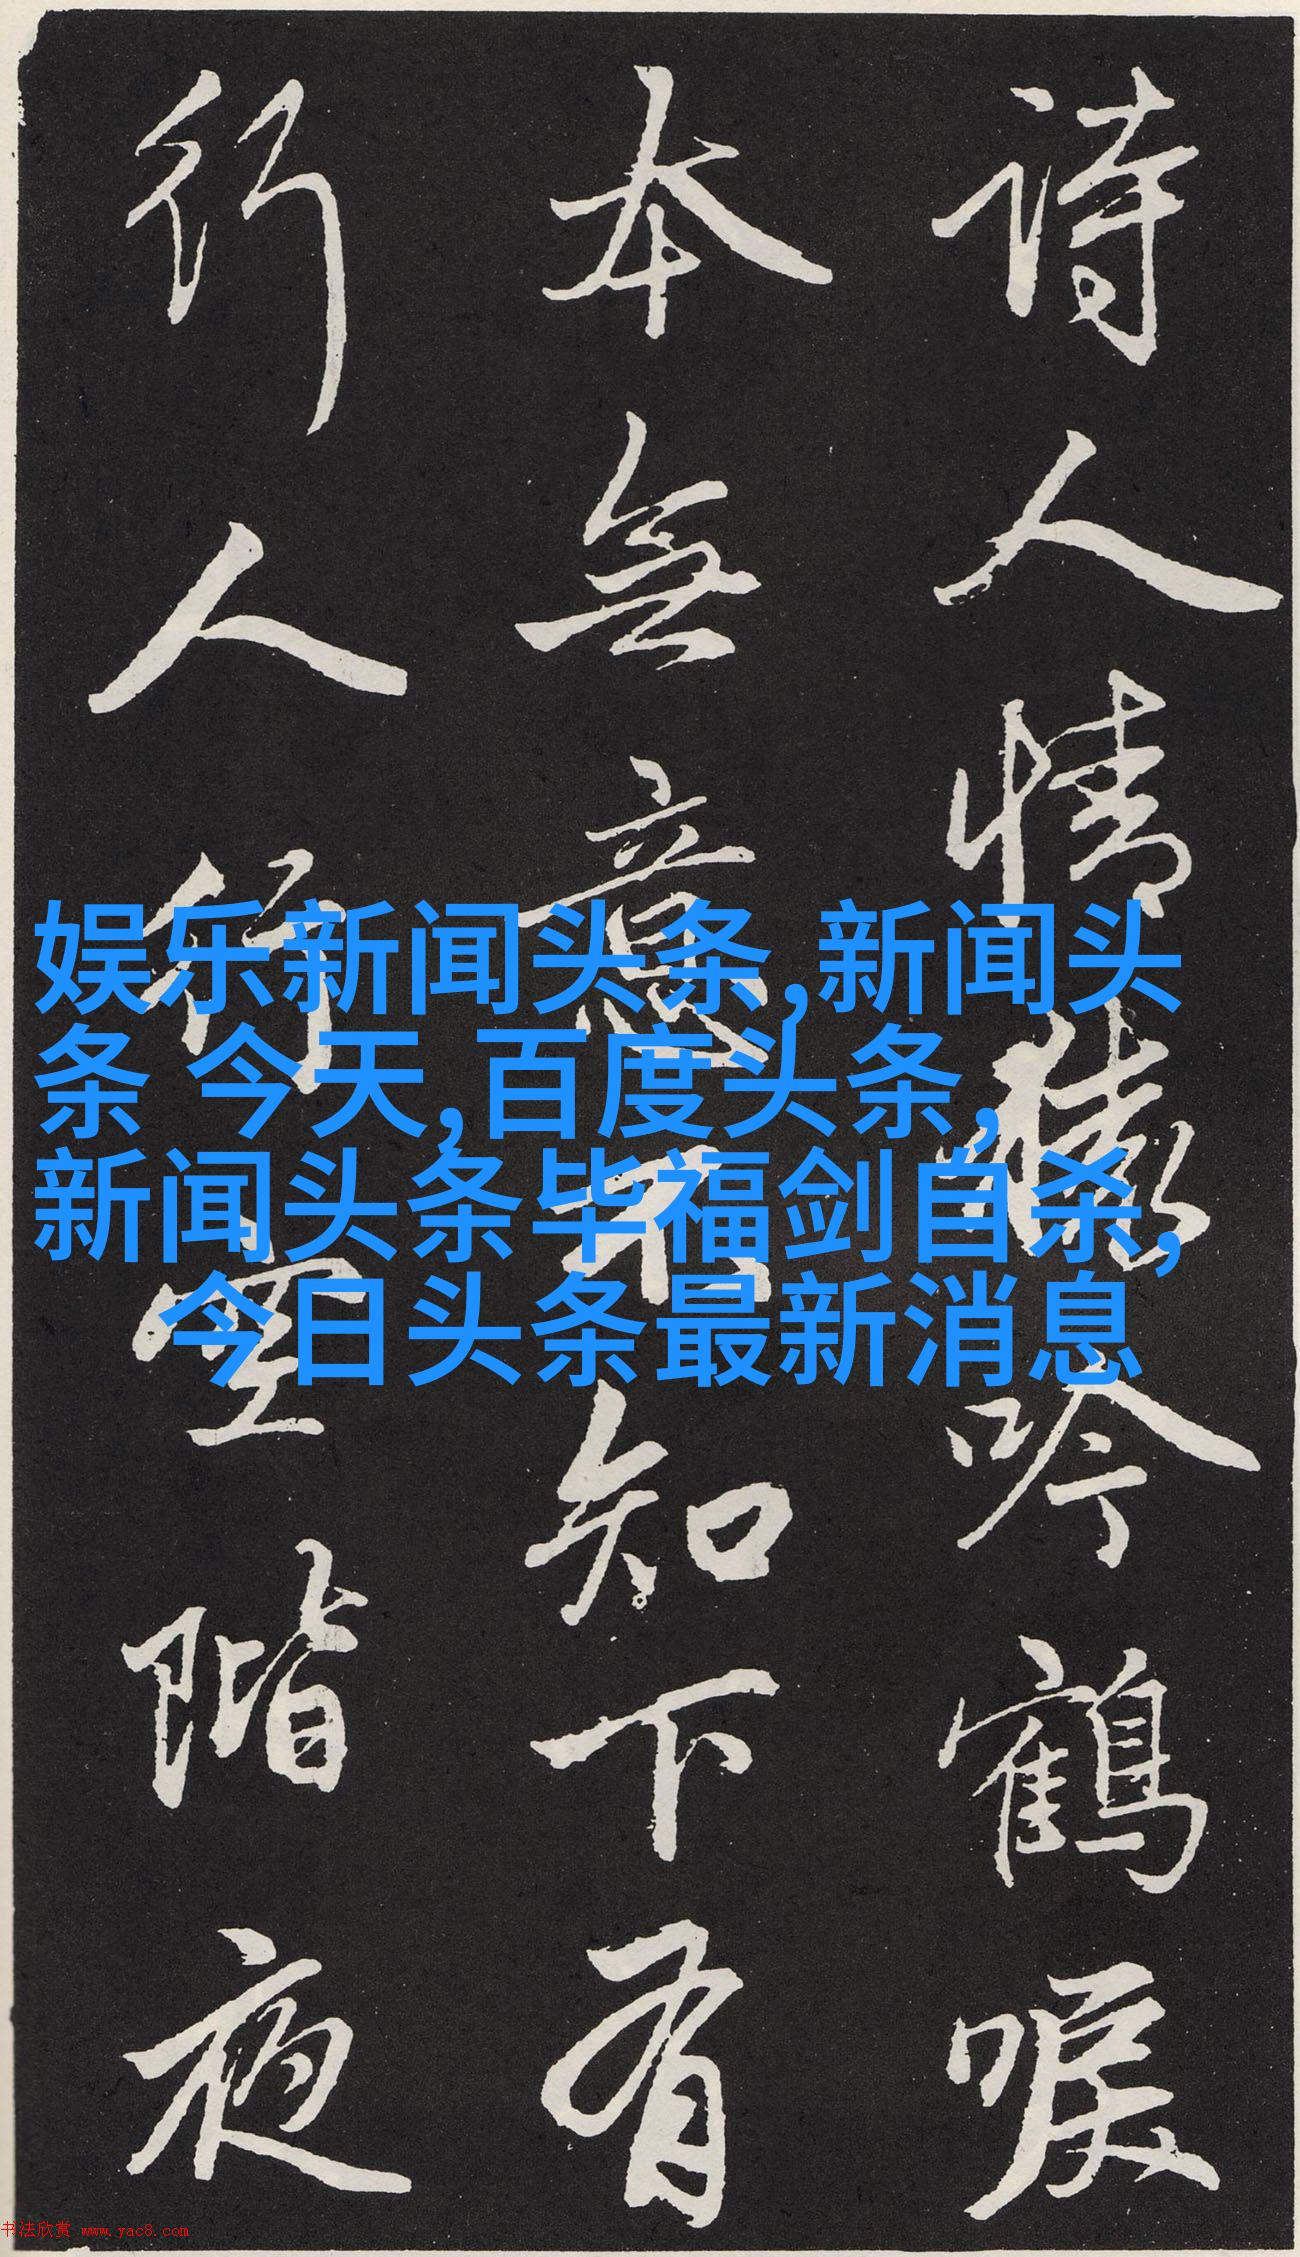 詩人情猿吟鶴唳
本無意不知下有
行人行空階夜
娱乐新闻头条,新闻头
条 今天,百度头条,
新闻头条毕福剑自杀,
今日头条最新消息
书法欣赏 www.yac8.com